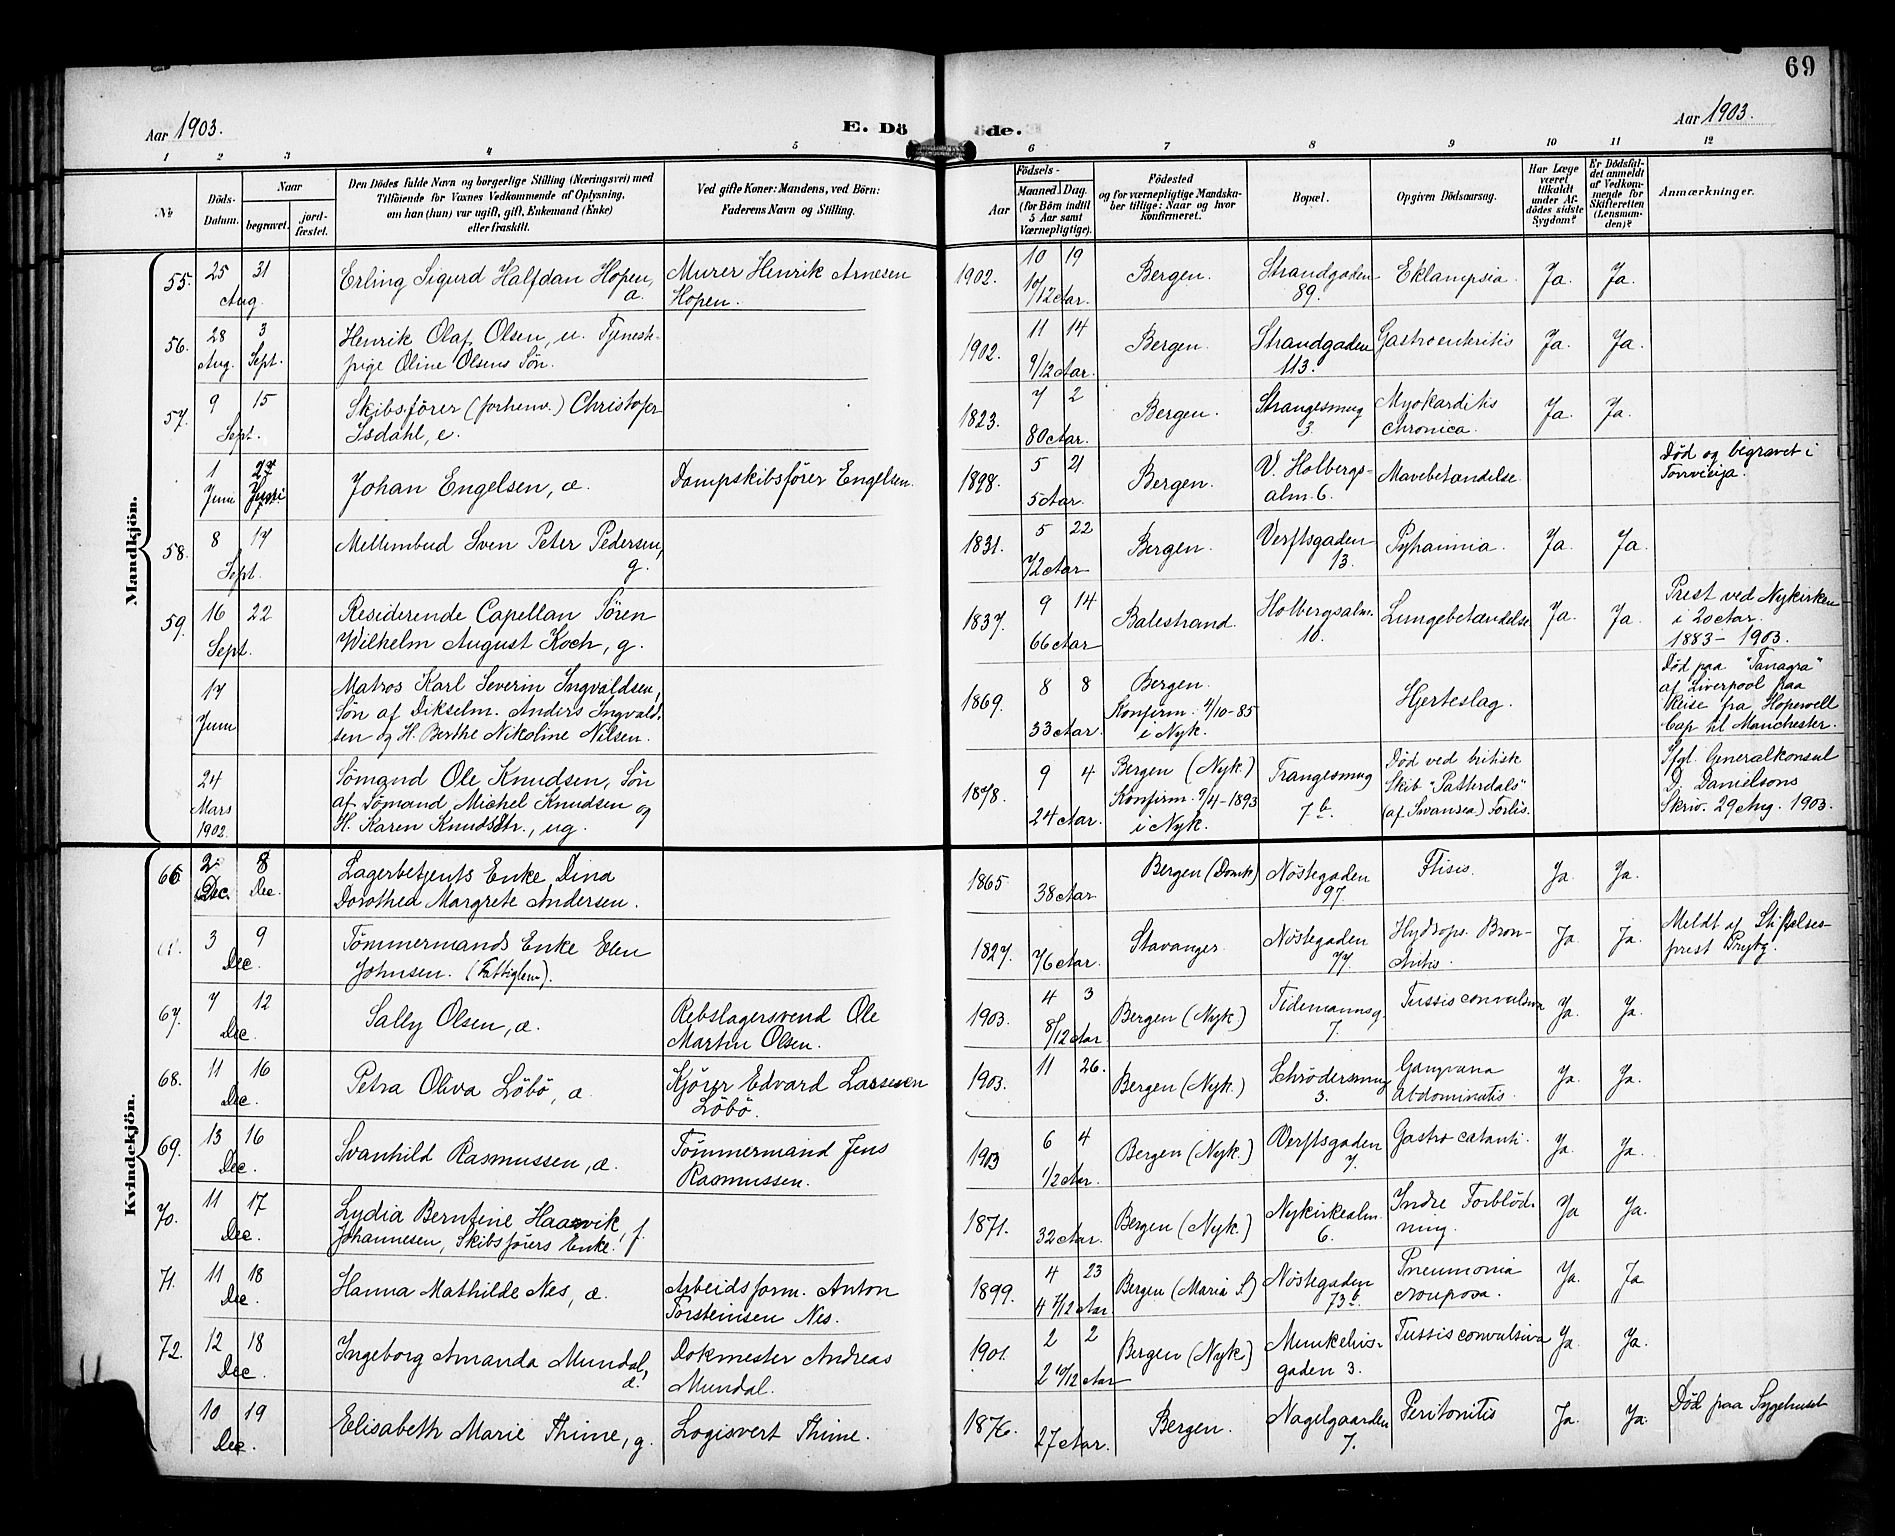 69
Aar 1903.
E. Döde.
Aar 1903.
1 2 3 4 5 6 7 8 9 10 11 12
No
Döds-Datum.
Naar
begravet.
jord-fæstet.
Den Dödes fulde Navn og borgerlige Stilling (Næringsvei) med
Tilföiende for Voxnes Vedkommende af Oplysning,
om han (hun) var ugift, gift, Enkemand (Enke)
eller fraskilt.
Ved gifte Koner: Mandens, ved Börn:
Faderens Navn og Stilling.
Aar
Födsels-
Maaned Dag.
(for Börn indtil
5 Aar samt
Værnepligtige).
Födested
og for værnepligtige Mandska-
ber tillige: Naar og hvor
konfirmeret.
Bopæl.
Opgiven Dödsaarsag.
Har Læge
været
tilkaldt
under Af-
dödes sidste
Sygdom?
Er Dödsfal-
det anmeldt
af Vedkom-
mende for
Skifteretten
(Lensman-
den)?
Anmærkninger.
Mandkjön.
55. 25 31 Erling Sigurd Halfdan Hopen, Murer Henrik Arnesen 1902. 10 19 Bergen. Strandgaden Eklampsia. Ja. Ja.
Aug. æ. Hopen. 10/12 Aar. 89.
56. 28 3 Henrik Olaf Olsen, u. Tjeneste- 1902. 11 14 Bergen. Strandgaden Gastroenteritis Ja. Ja.
Aug. Sept. pige Oline Olsens Sön. 9/12 Aar. 113.
57. 9 15 Skibsförer (forhenv.) Christofer 1823. 7 2 Bergen. Strangesmug Myokarditis Ja. Ja.
Sept. Isdahl, e. 80 Aar. 3. chronica.
1 27 Johan Engelsen, æ. Dampskibsförer Engelsen. 1898. 5 21 Bergen. V. Holbergs- Mavebetændelse. Död og begravet i
Juni Juni 5 Aar. alm. 6.
58. 8 17 Mellembud Sven Peter Pedersen, 1831. 5 22 Bergen. Verftsgaden Pyhaimia. Ja. Ja.
Sept. g. 72 Aar 13.
59. 16 22 Residerende Capellan Sören 1837. 9 14 Balestrand. Holbergsalm. Lungebetændelse Ja. Ja. Prest ved Nykirken
Sept. Wilhelm August Koch, g. 66 Aar 10. i 20 Aar.
1883 - 1903.
17 Matros Karl Severin Ingvaldsen, 1869. 8 8 Bergen. Hjerteslag. Död paa "Tanagra"
Juni Sön af Dikselm. Anders Ingvald- 33 Aar. Konfirm. 4/10-85 af Liverpool paa
sen og H. Berthe Nikoline Nilsen. i Nyk. Reise fra Hopewell
Cap til Manchester.
24 Sömand Ole Knudsen, Sön 1878. 9 4 Bergen (Nyk.) Trangesmug Död ved britisk Ifgl. Generalkonsul
Mars af Sömand Michel Knudsen og 24 Aar. Konfirm. 9/4-1893 7 b. Skib "Patterdals" D. Danielsons
1902. H. Karen Knudsdtr., ug. i Nyk. (af Swansea) Forlis. Skriv. 29 Aug. 1903.
Kvindekjön.
66 2 8 Lagerbetjents Enke Dina 1865 Bergen (Domk) Nöstegaden Ftisis. Ja. Ja.
Dec. Dec. Dorothea Margrete Andersen. 38 Aar 97.
3 9 Tömmermands Enke Elen 1827. Stavanger. Nöstegaden Hydrops. Bron- Ja. Ja. Meldt af Stiftelses-
Dec. Johnsen. (Fattiglem). 76 Aar. 77. chitis. prest
67. 7 12 Sally Olsen, æ. Rebslagersvend Ole 1903. 4 3 Bergen (Nyk.) Tidemannsg. Tussis convulsiva Ja. Ja.
Dec. Martin Olsen. 8/12 Aar 7.
68. 11 16 Petra Oliva Löbö, æ. Kjörer Edvard Lassesen 1903. 11 26. Bergen (Nyk.) Schrödersmug Gangræna Ja. Ja.
Dec. Löbö. 3. abdominalis.
69. 13 16 Svanhild Rasmussen, æ. Tömmermand Jens 1903 6 4 Bergen (Nyk.) Verftsgaden Gastro catarrh. Ja. Ja.
Dec. Rasmussen. 1/2 Aar. 7.
70. 11 17 Lydia Berntine Haasvik, f. 1871. Bergen (Nyk.) Nykirkealm. Indre Forblöd- Ja Ja.
Dec. Johannesen, Skibsförers Enke. 32 Aar 6. ning.
71. 11 18 Hanna Mathilde Nes, æ. Arbeidsform. Anton 1899. 4 23 Bergen (Maria S.) Nöstegaden Pneumonia Ja. Ja
Dec. Torsteinsen Nes. 4 7/12 Aar 73 b. crouposa.
72. 12 18 Ingeborg Amanda Mundal, Dokmester Andreas 1901. 2 2 Bergen (Nyk.) Munkehus- Tussis convulsiva Ja. Ja.
Dec. æ. Mundal. 2 10/12 Aar gaden 3.
10 19 Elisabeth Marie Thime, g. Logisvert Thime. 1876. Bergen. Nagelgaarden Peritonitis Ja. Ja. Död paa Sygehuset
Dec. 27 Aar. 7.